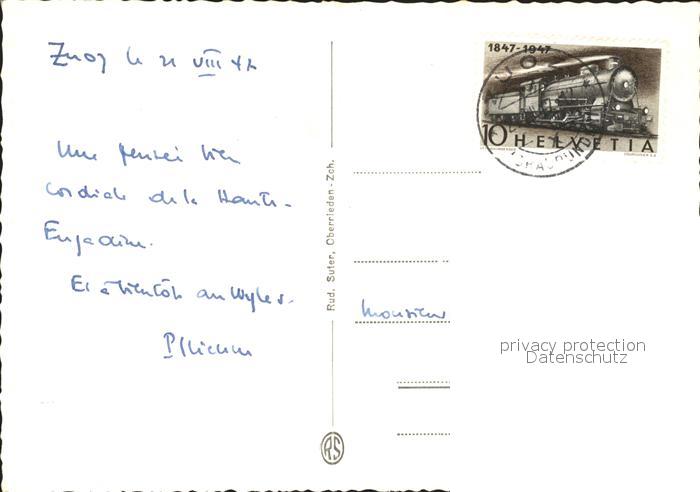 Zuoz le 21 VIII 47
Une pensée bien
cordiale de la Haute-
Engadine.
Et à bientôt au Wyler.
Rud. Suter, Oberrieden-Zch.
RS
1847-1947
ZUOZ
10 HELVETIA
(GRAUBÜNDEN)
Monsieur
privacy protection
Datenschutz